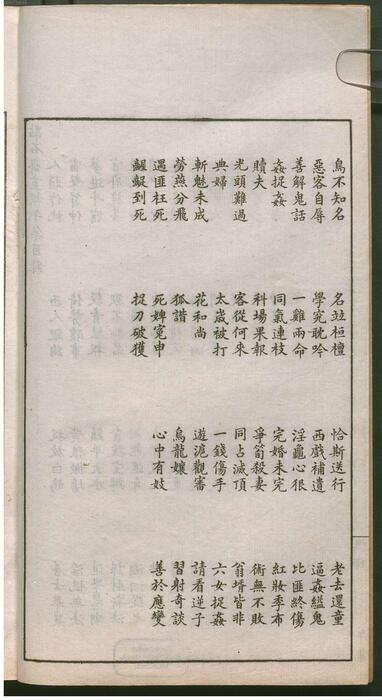 鳥不知名 名竝桓檀 恰斯送行 老去還童
惡客自辱 學究耽吟 西戲補遺 逼姦縊鬼
善解鬼話 一雞兩命 淫龜心狠 比匪終傷
姦捉姦 同氣連枝 完婚未完 紅妝季布
贖夫 科場果報 爭殺妻 術無不敗
光頭難過 客從何來 同占滅頂 翁壻皆非
典婦 太歲被打 一錢傷手 六女捉姦
斬魅未成 花和尚 遊滬觀審 請看逆子
勞燕分飛 狐諧 烏龍孃 習射奇談
遇匪枉死 死婢冤申 心中有妓 善於應變
齷齪到死 捉刀破獲